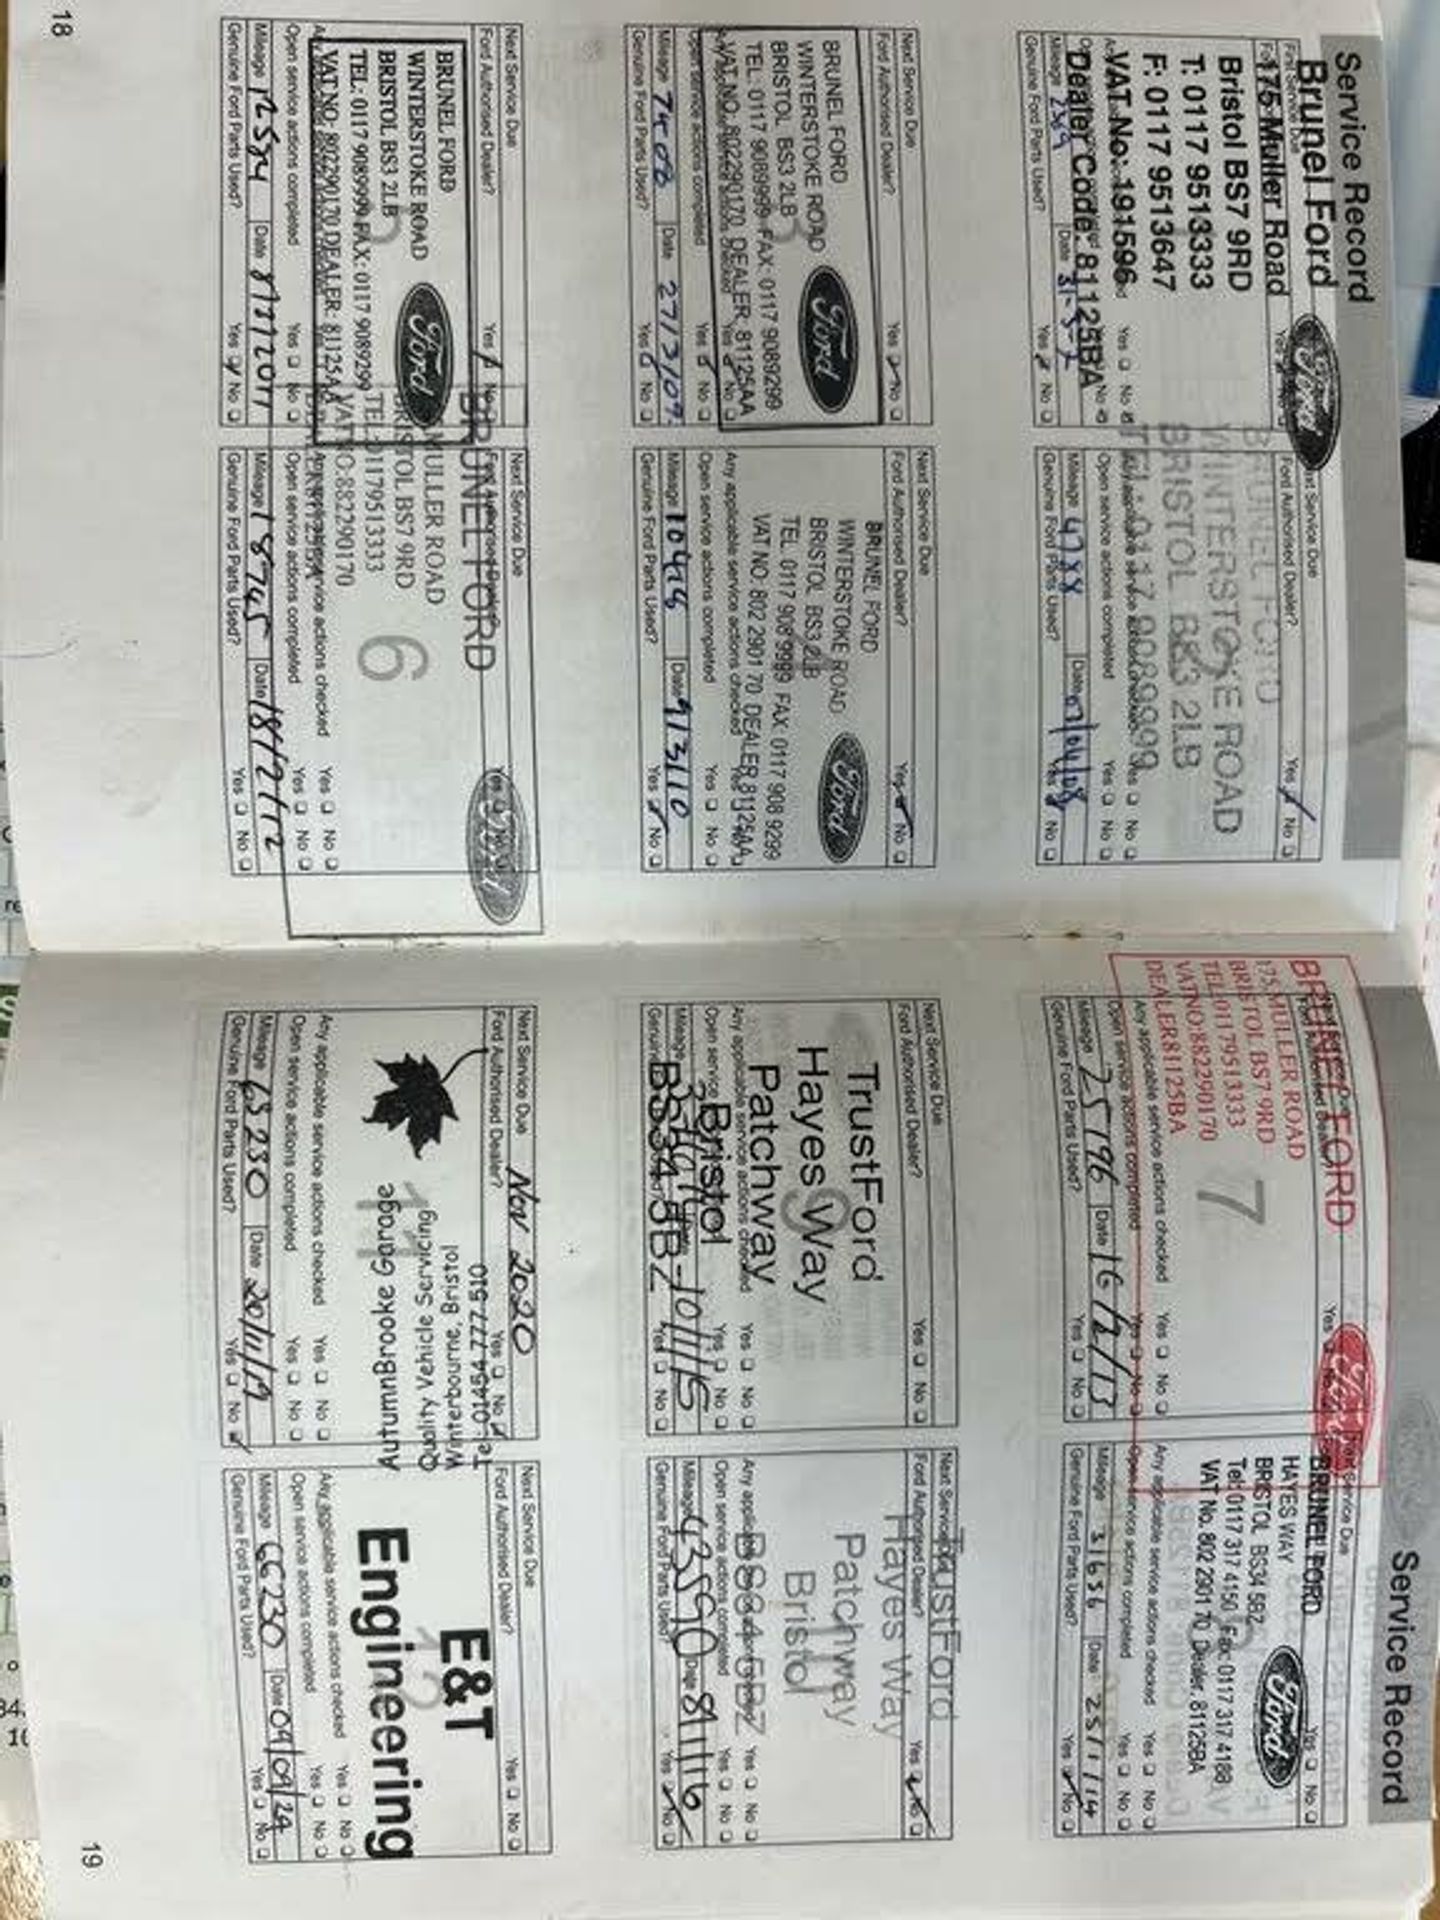 Service Record
First Service Due
Brunel Ford
175 Muller Road
Bristol BS7 9RD
T: 0117 9513333
F: 0117 9513647
VAT No: 191596
Dealer Code: 81125BA
Yes No
Mileage Date 31-3-
Genuine Ford Parts Used? Yes No
Next Service Due
Ford Authorised Dealer? Yes No
BRUNEL FORD
WINTERSTOKE ROAD
BRISTOL BS3 2LB
TEL: 0117 9089999
Any applicable service actions checked Yes No
Open service actions completed Yes No
Mileage 4788 Date 07/04/08
Genuine Ford Parts Used? Yes No
Next Service Due
Ford Authorised Dealer? Yes No
3
BRUNEL FORD
WINTERSTOKE ROAD
BRISTOL BS3 2LB
TEL: 0117 9089999 FAX: 0117 9089299
VAT NO: 802290170 DEALER: 81125AA
Ford
Open service actions completed Yes No
Mileage 7406 Date 27/3/09
Genuine Ford Parts Used? Yes No
Next Service Due
Ford Authorised Dealer? Yes No
BRUNEL FORD
WINTERSTOKE ROAD
BRISTOL BS3 2LB
TEL 0117 908 9999 FAX 0117 908 9299
VAT NO: 802 2901 70 DEALER 81125AA
Ford
Any applicable service actions checked Yes No
Open service actions completed Yes No
Mileage 10418 Date 9/3/10
Genuine Ford Parts Used? Yes No
Next Service Due
Ford Authorised Dealer? Yes No
BRUNEL FORD
WINTERSTOKE ROAD
BRISTOL BS3 2LB
TEL: 0117 9089999 FAX: 0117 9089299
VAT NO: 802290170 DEALER: 81125AA
Ford
Open service actions completed Yes No
Mileage 12584 Date 8/2/2011
Genuine Ford Parts Used? Yes No
Next Service Due
BRUNEL FORD
MULLER ROAD
BRISTOL BS7 9RD
TEL:01179513333
VATNO:882290170
6
Ford
Any applicable service actions checked Yes No
Open service actions completed Yes No
Mileage 18745 Date 18/2/12
Genuine Ford Parts Used? Yes No
18
Service Record
BRUNEL FORD
175 MULLER ROAD
BRISTOL BS7 9RD
TEL:01179513333
VATNO:882290170
DEALER81125BA
7
Ford
Any applicable service actions checked Yes No
Open service actions completed Yes No
Mileage 25196 Date 16/2/13
Genuine Ford Parts Used? Yes No
Next Service Due
BRUNEL FORD
HAYES WAY
BRISTOL BS34 5BZ
Tel: 0117 317 4150 Fax: 0117 317 4188
VAT No. 802 2901 70 Dealer. 81125BA
Ford
Any applicable service actions checked Yes No
Open service actions completed Yes No
Mileage 31636 Date 25/1/14
Genuine Ford Parts Used? Yes No
Next Service Due
Ford Authorised Dealer? Yes No
9
TrustFord
Hayes Way
Patchway
Bristol
BS34 5BZ
Any applicable service actions checked Yes No
Open service Yes No
Mileage 10/1/15
Genuine Yes No
Next Service Due
Ford Authorised Dealer? Yes No
TrustFord
Hayes Way
Patchway
Bristol
BS34 5BZ
Any applicable Yes No
Open service actions completed Yes No
Mileage 43590 Date 8/1/16
Genuine Ford Parts Used? Yes No
Next Service Due Nov 2020
Ford Authorised Dealer? Yes No
11
AutumnBrooke Garage
Quality Vehicle Servicing
Winterbourne, Bristol
Tel: 01454 777 510
Any applicable service actions checked Yes No
Open service actions completed Yes No
Mileage 63230 Date 20/11/19
Genuine Ford Parts Used? Yes No
Next Service Due
Ford Authorised Dealer? Yes No
12
E&T
Engineering
Any applicable service actions checked Yes No
Open service actions completed Yes No
Mileage 66230 Date 09/09/24
Genuine Ford Parts Used? Yes No
19